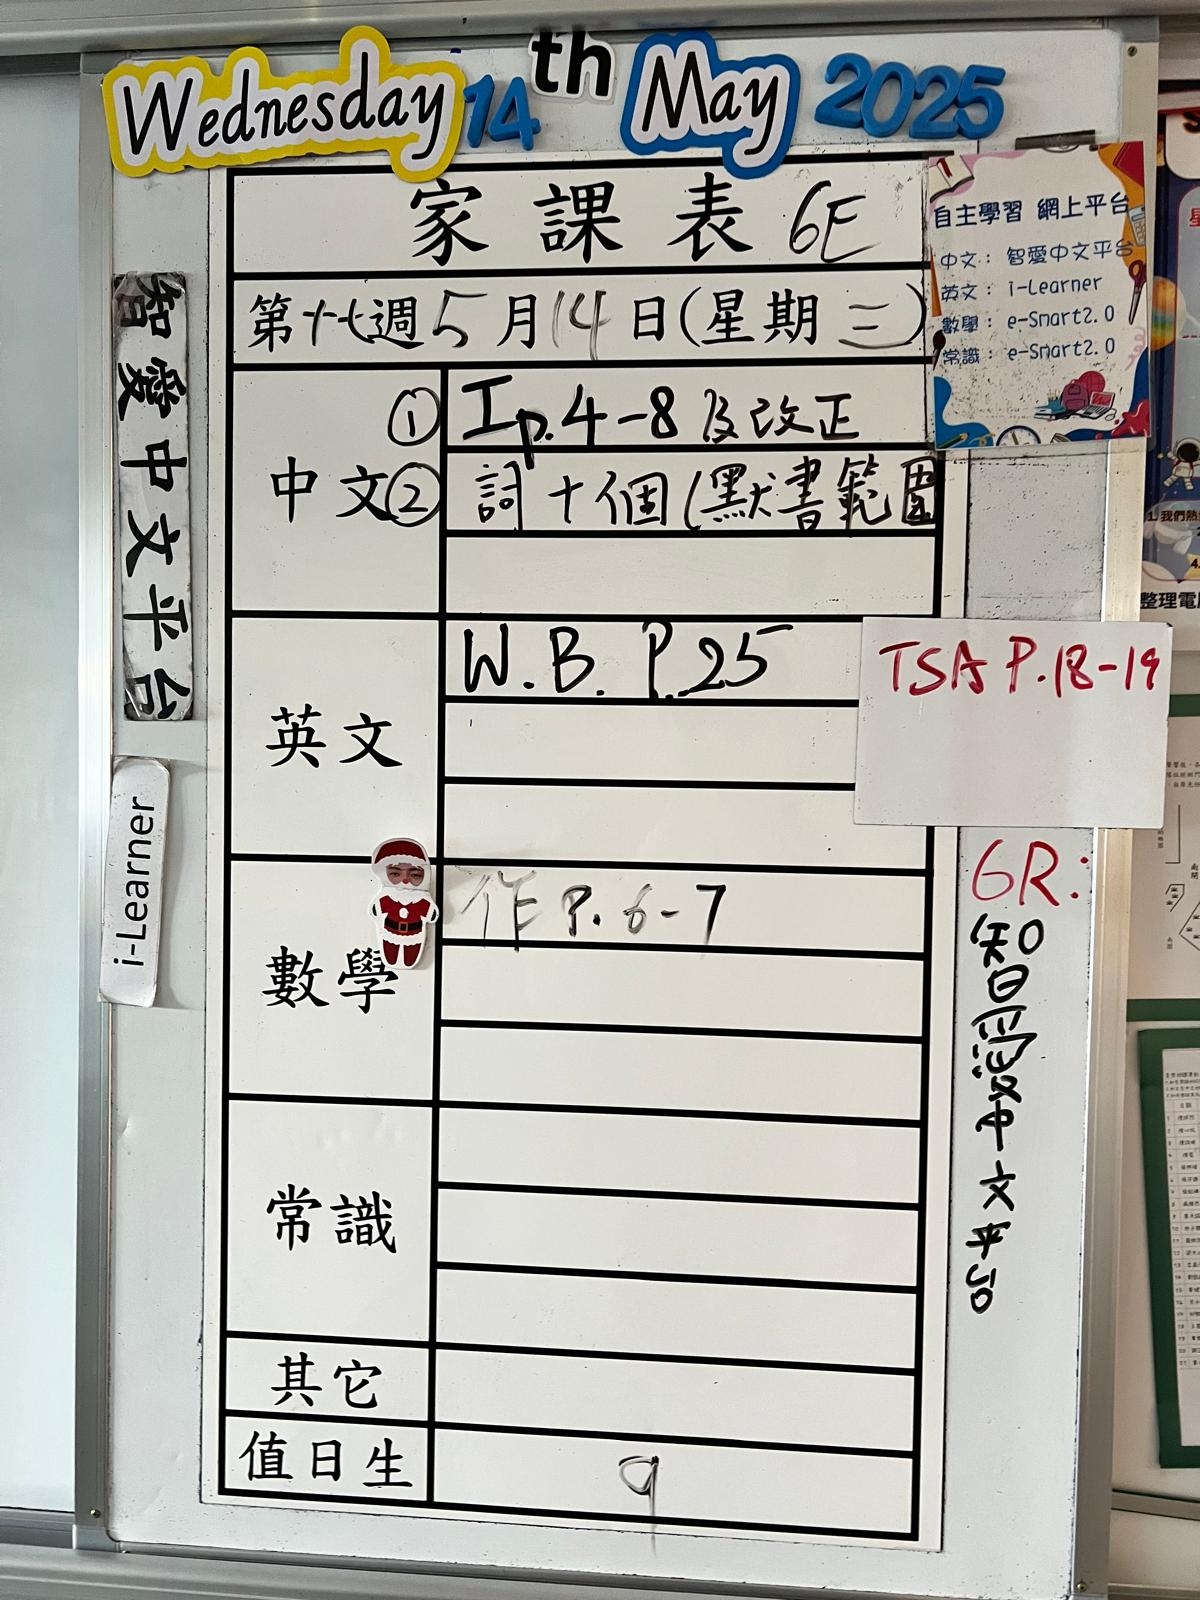 Wednesday 14th May 2025
家課表 6E
第十七週5月14日(星期三)
中文
① I p.4-8及改正
② 詞十個(默書範圍
英文
W.B. P.25
TSA P.18-19
數學
作P.6-7
常識
其它
值日生
9
自主學習 網上平台
中文：智愛中文平台
英文：i-Learner
數學：e-Smart2.0
常識：e-Smart2.0
智愛中文平台
i-Learner
6R:
智愛中文平台
1. 我們熱
4.
整理電